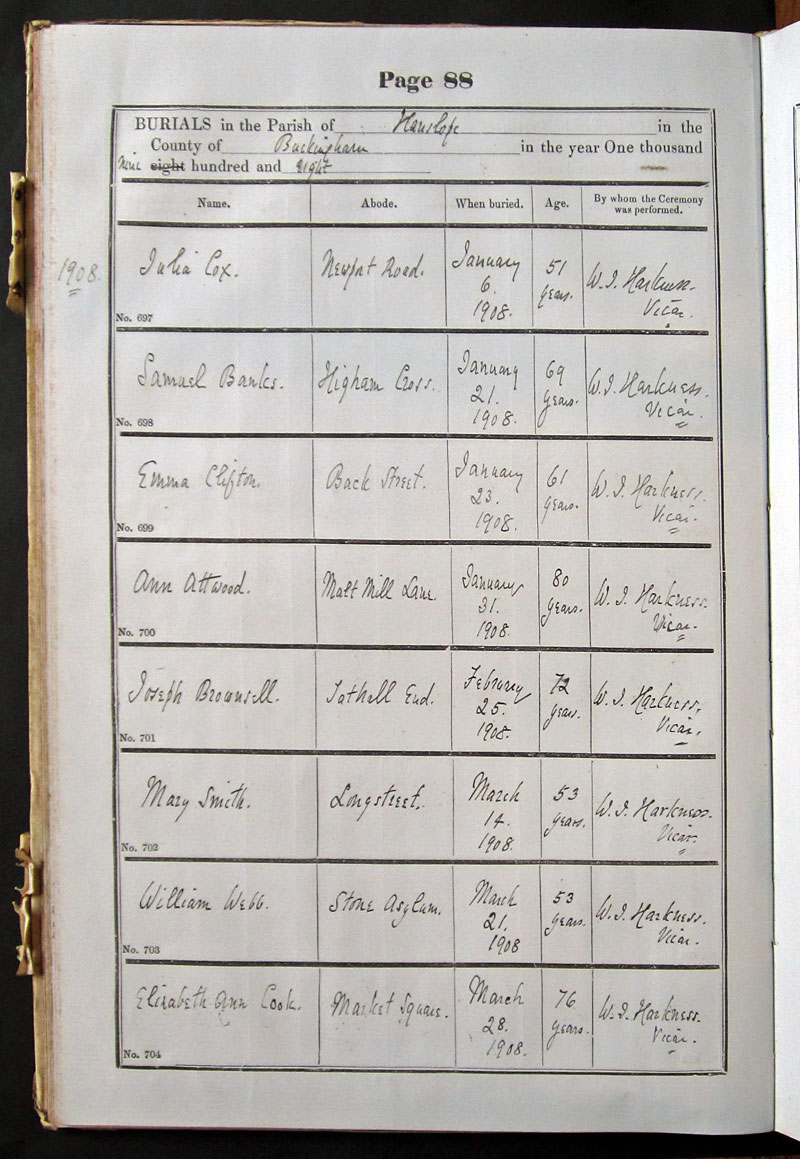 Page 88
BURIALS in the Parish of Hanslope in the
County of Buckingham in the year One thousand
nine eight hundred and eight
Name. Abode. When buried. Age. By whom the Ceremony was performed.
1908.
Julia Cox. Newport Road. January 6. 1908. 51 years. W. J. Harkness. Vicar.
No. 697
Samuel Banks. Higham Cross. January 21. 1908. 69 years. W. J. Harkness. Vicar.
No. 698
Emma Clifton. Back Street. January 23. 1908. 61 years. W. J. Harkness. Vicar.
No. 699
Ann Attwood. Malt Mill Lane. January 31. 1908. 80 years. W. J. Harkness. Vicar.
No. 700
Joseph Brownsell. Tathall End. February 25. 1908. 72 years. W. J. Harkness. Vicar.
No. 701
Mary Smith. Longstreet. March 14. 1908. 53 years. W. J. Harkness. Vicar.
No. 702
William Webb. Stone Asylum. March 21. 1908 53 years. W. J. Harkness. Vicar.
No. 703
Elizabeth Ann Cook. Market Square. March 28. 1908. 76 years. W. J. Harkness. Vicar.
No. 704